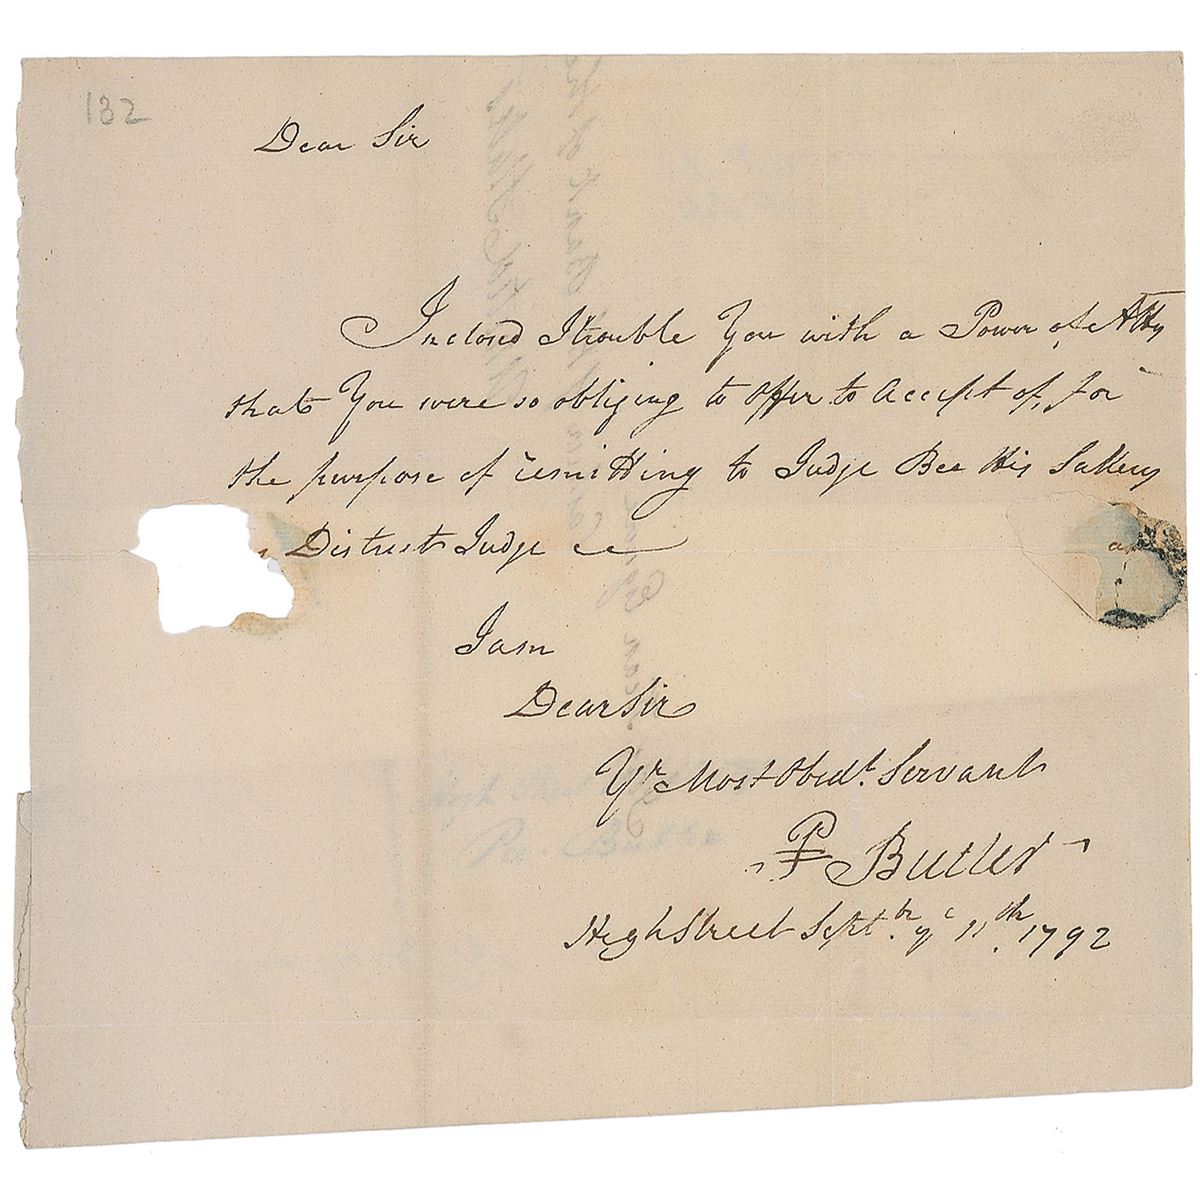 132
Dear Sir
Inclosed I trouble You with a Power of Atty
that You were so obliging to offer to Accept of, for
the purpose of remitting to Judge Bee His Sallery
as District Judge
I am
Dear Sir
Yr Most Obedt. Servant
P Butler
High Street Septbr. ye 11th. 1792